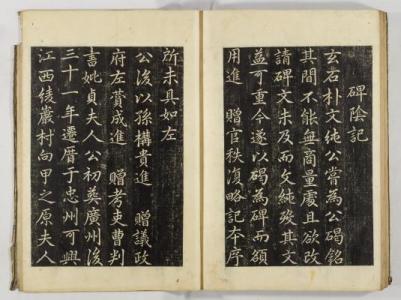 碑陰記
玄石朴文純公嘗為公碣銘
其間不能無商量處且欲改
請碑文未及而文純歿其文
益可重今遂以碣為碑而額
用進 贈官秩復略記本序
所未具如左
公後以孫構貴進 贈議政
府左贊成進 贈考吏曹判
書妣貞夫人公初葬廣州後
三十一年遷厝于忠州可興
江西綾巖村向甲之原夫人